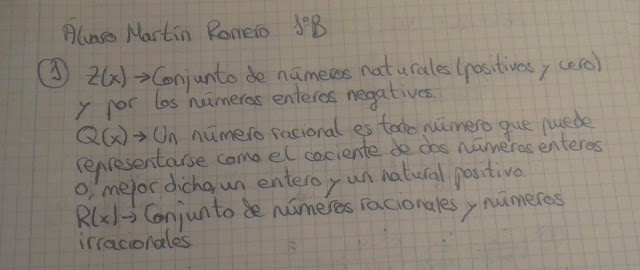 Álvaro Martín Romero 1ºB
① Z(x) → Conjunto de números naturales (positivos y cero)
y por los números enteros negativos.
Q(x) → Un número racional es todo número que puede
representarse como el cociente de dos números enteros
o, mejor dicho, un entero y un natural positivo.
R(x) → Conjunto de números racionales y números
irracionales